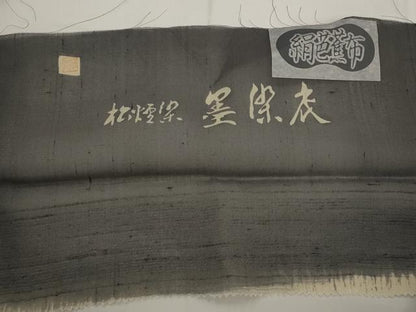 絹芭蕉布
松煙染 墨染衣